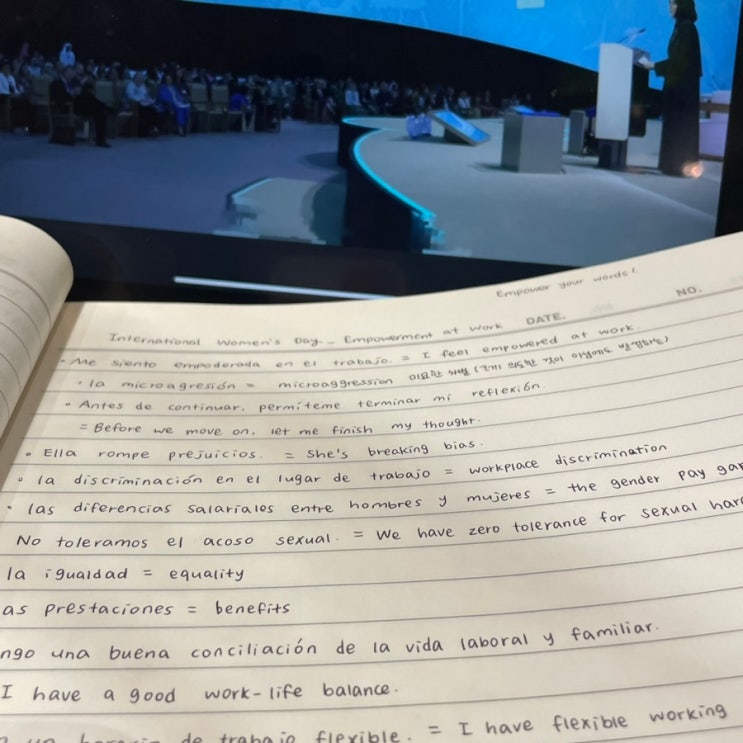 Empower your words!
NO.
DATE.
International Women's Day - Empowerment at work
• Me siento empoderada en el trabajo. = I feel empowered at work.
• la microagresión = microaggression 미묘한 차별
• Antes de continuar, permíteme terminar mi reflexión.
= Before we move on, let me finish my thought.
• Ella rompe prejuicios. = She's breaking bias.
• la discriminación en el lugar de trabajo = workplace discrimination
• las diferencias salariales entre hombres y mujeres = the gender pay gap
No toleramos el acoso sexual. = We have zero tolerance for sexual
la igualdad = equality
as prestaciones = benefits
ngo una buena conciliación de la vida laboral y familiar.
I have a good work-life balance.
de trabajo flexible. = I have flexible working